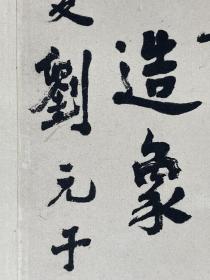 造象
劉元于